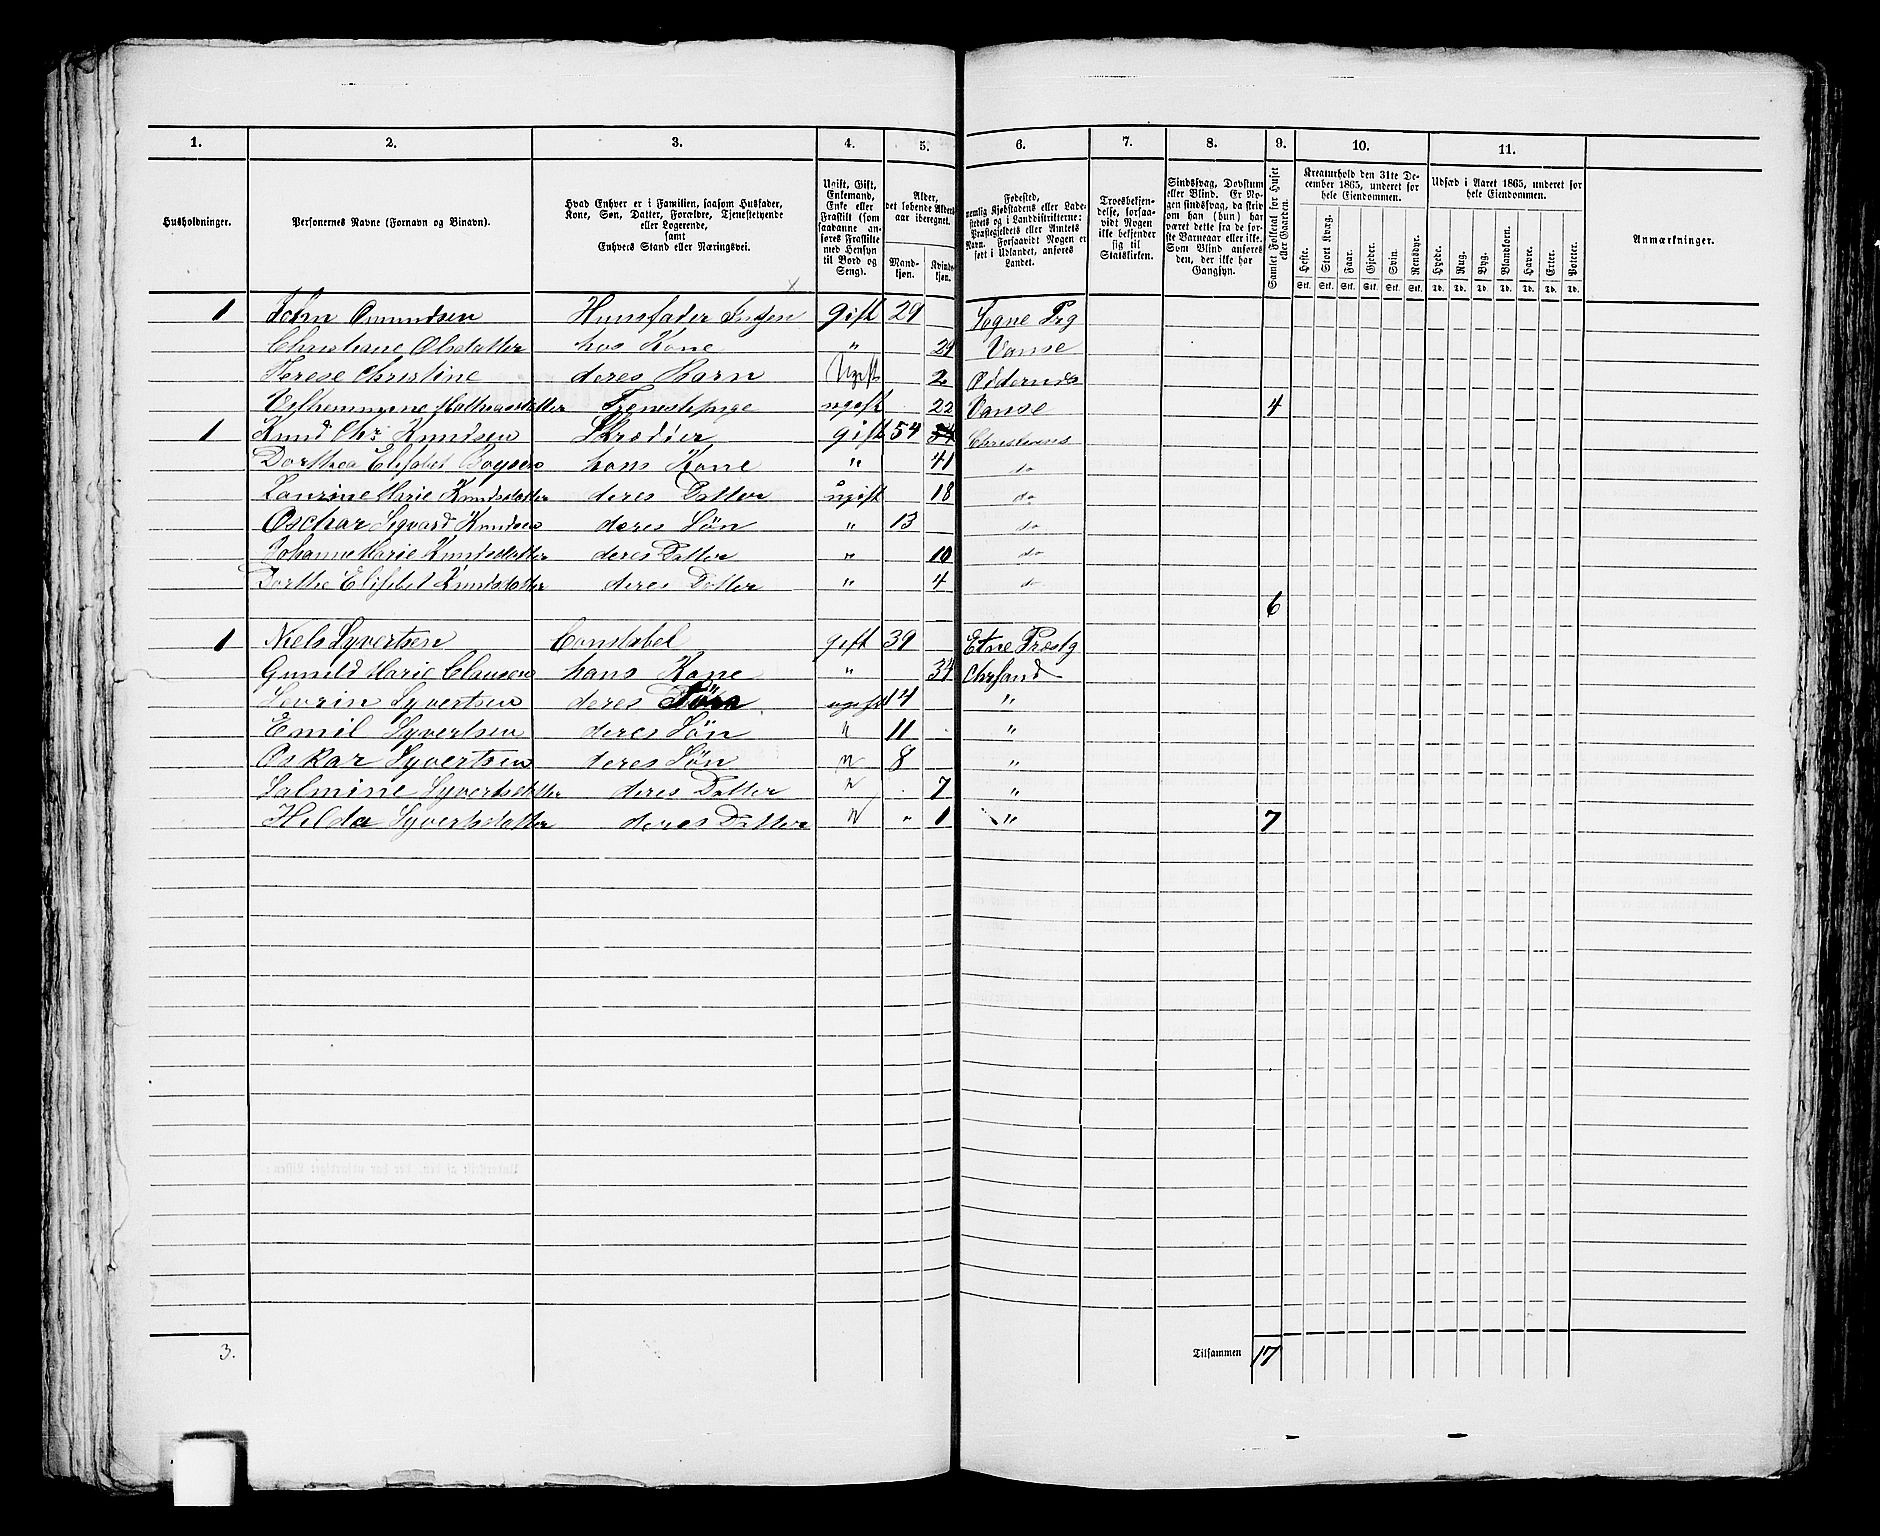 1. 2. 3. 4. 5. 6. 7. 8. 9. 10. 11.
Husholdninger.
Personernes Navne (Fornavn og Binavn).
Hvad Enhver er i Familien, saasom Husfader, Kone, Søn, Datter, Forældre, Tjenestetyende eller Logerende, samt Enhvers Stand eller Næringsvei.
Ugift, Gift, Enkemand, Enke eller Fraskilt (som saadanne anføres Fraskilte med Hensyn til Bord og Seng).
Alder, det løbende Alders-aar iberegnet.
Mand-kjøn. Kvinde-kjøn.
Fødested, nemlig Kjøbstadens eller Ladestedets og i Landdistrikterne: Præstegjeldets eller Amtets Navn. Forsaavidt Nogen er født i Udlandet, anføres Landet.
Troesbekjendelse, forsaavidt Nogen ikke bekjender sig til Statskirken.
Sindssvag, Døvstum eller Blind. Er Nogen sindssvag, da skriv om han (hun) har været dette fra de første Barneaar eller ikke. Som Blind anføres den, der ikke har Gangsyn.
Samlet Folketal for Huset eller Gaarden.
Kreaturhold den 31te December 1865, underet for hele Eiendommen.
Heste. Stort Kvæg. Faar. Gjeder. Svin. Rensdyr.
Stk. Stk. Stk. Stk. Stk. Stk.
Udsæd i Aaret 1865, underet for hele Eiendommen.
Hvede. Rug. Byg. Blandkorn. Havre. Erter. Poteter.
Td. Td. Td. Td. Td. Td. Td.
Anmærkninger.
1 John Omundsen Huusfader gift 29 Sogne Prg
Christiane Olsdatter hos Kone " 29 Vanse
Terese Christine deres Barn Ugift 2 Oddernes
Vilhemmine Mathiasdatter Tjenestepige ugift 22 Vanse 4
1 Knud Chr. Knudsen Skrædder gift 54 Christians
Dorthea Elisabet Boysen hans Kone " 41 do
Laurine Marie Knudsdatter deres Datter ugift 18 do
Oschar Sigvard Knudsen deres Søn " 13 do
Johanne Marie Knudsdatter deres Datter " 10 do
Dorthe Elisabet Knudsdatter deres Datter " 4 do
6
1 Niels Syvertsen Constabel gift 39 Etne Præstg
Gunild Marie Clausen hans Kone " 34 Chrsand
Severin Syvertsen deres Søn ugift 14 "
Emil Syvertsen deres Søn " 11 "
Oskar Syvertsen deres Søn " 8 "
Salmine Syvertsdatter deres Datter " 7 "
Hilda Syvertsdatter deres Datter " " 1 " 7
3. Tilsammen 17